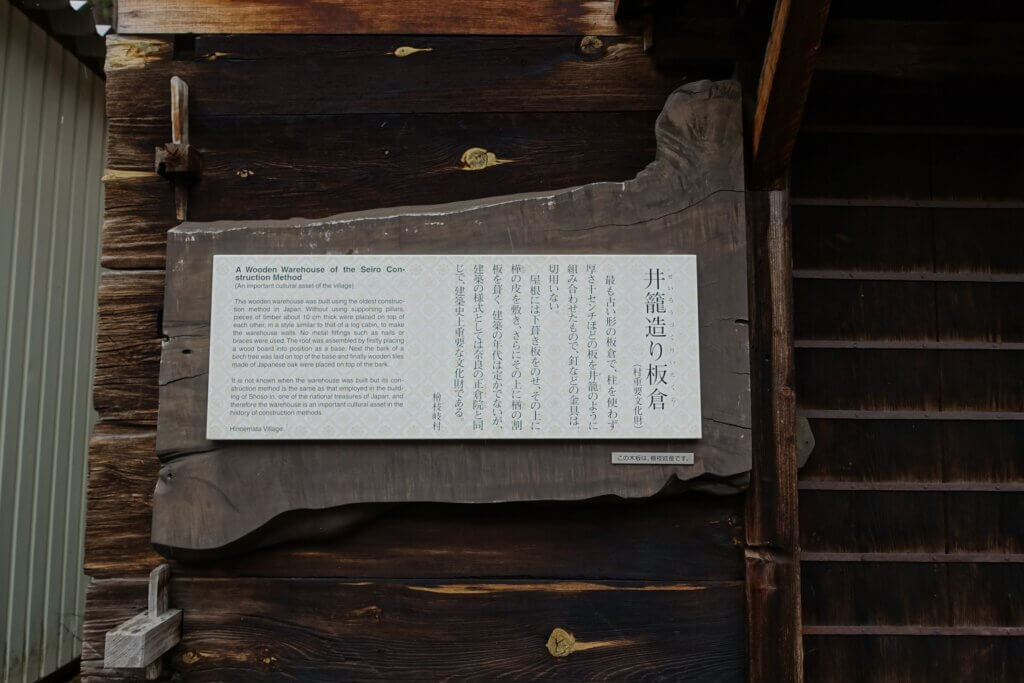 A Wooden Warehouse of the Seiro Con-
struction Method
(An important cultural asset of the village)
This wooden warehouse was built using the oldest construc-
tion method in Japan. Without using supporting pillars,
pieces of timber about 10 cm thick were placed on top of
each other, in a style similar to that of a log cabin, to make
the warehouse walls. No metal fittings such as nails or
braces were used. The roof was assembled by firstly placing
a wood board into position as a base. Next the bark of a
birch tree was laid on top of the base and finally wooden tiles
made of Japanese oak were placed on top of the bark.
It is not known when the warehouse was built but its con-
struction method is the same as that employed in the build-
ing of Shoso-in, one of the national treasures of Japan, and
therefore the warehouse is an important cultural asset in the
history of construction methods.
Hinoemata Village
井籠造り板倉
(村重要文化財)
最も古い形の板倉で、柱を使わず
厚さ十センチほどの板を井籠のように
組み合わせたもので、釘などの金具は一
切用いない。
屋根には下葺き板をのせ、その上に
樺の皮を敷き、さらにその上に楢の割
板を葺く。建築の年代は定かでないが、
建築の様式としては奈良の正倉院と同
じで、建築史上重要な文化財である。
檜枝岐村
この木板は、檜枝岐産です。